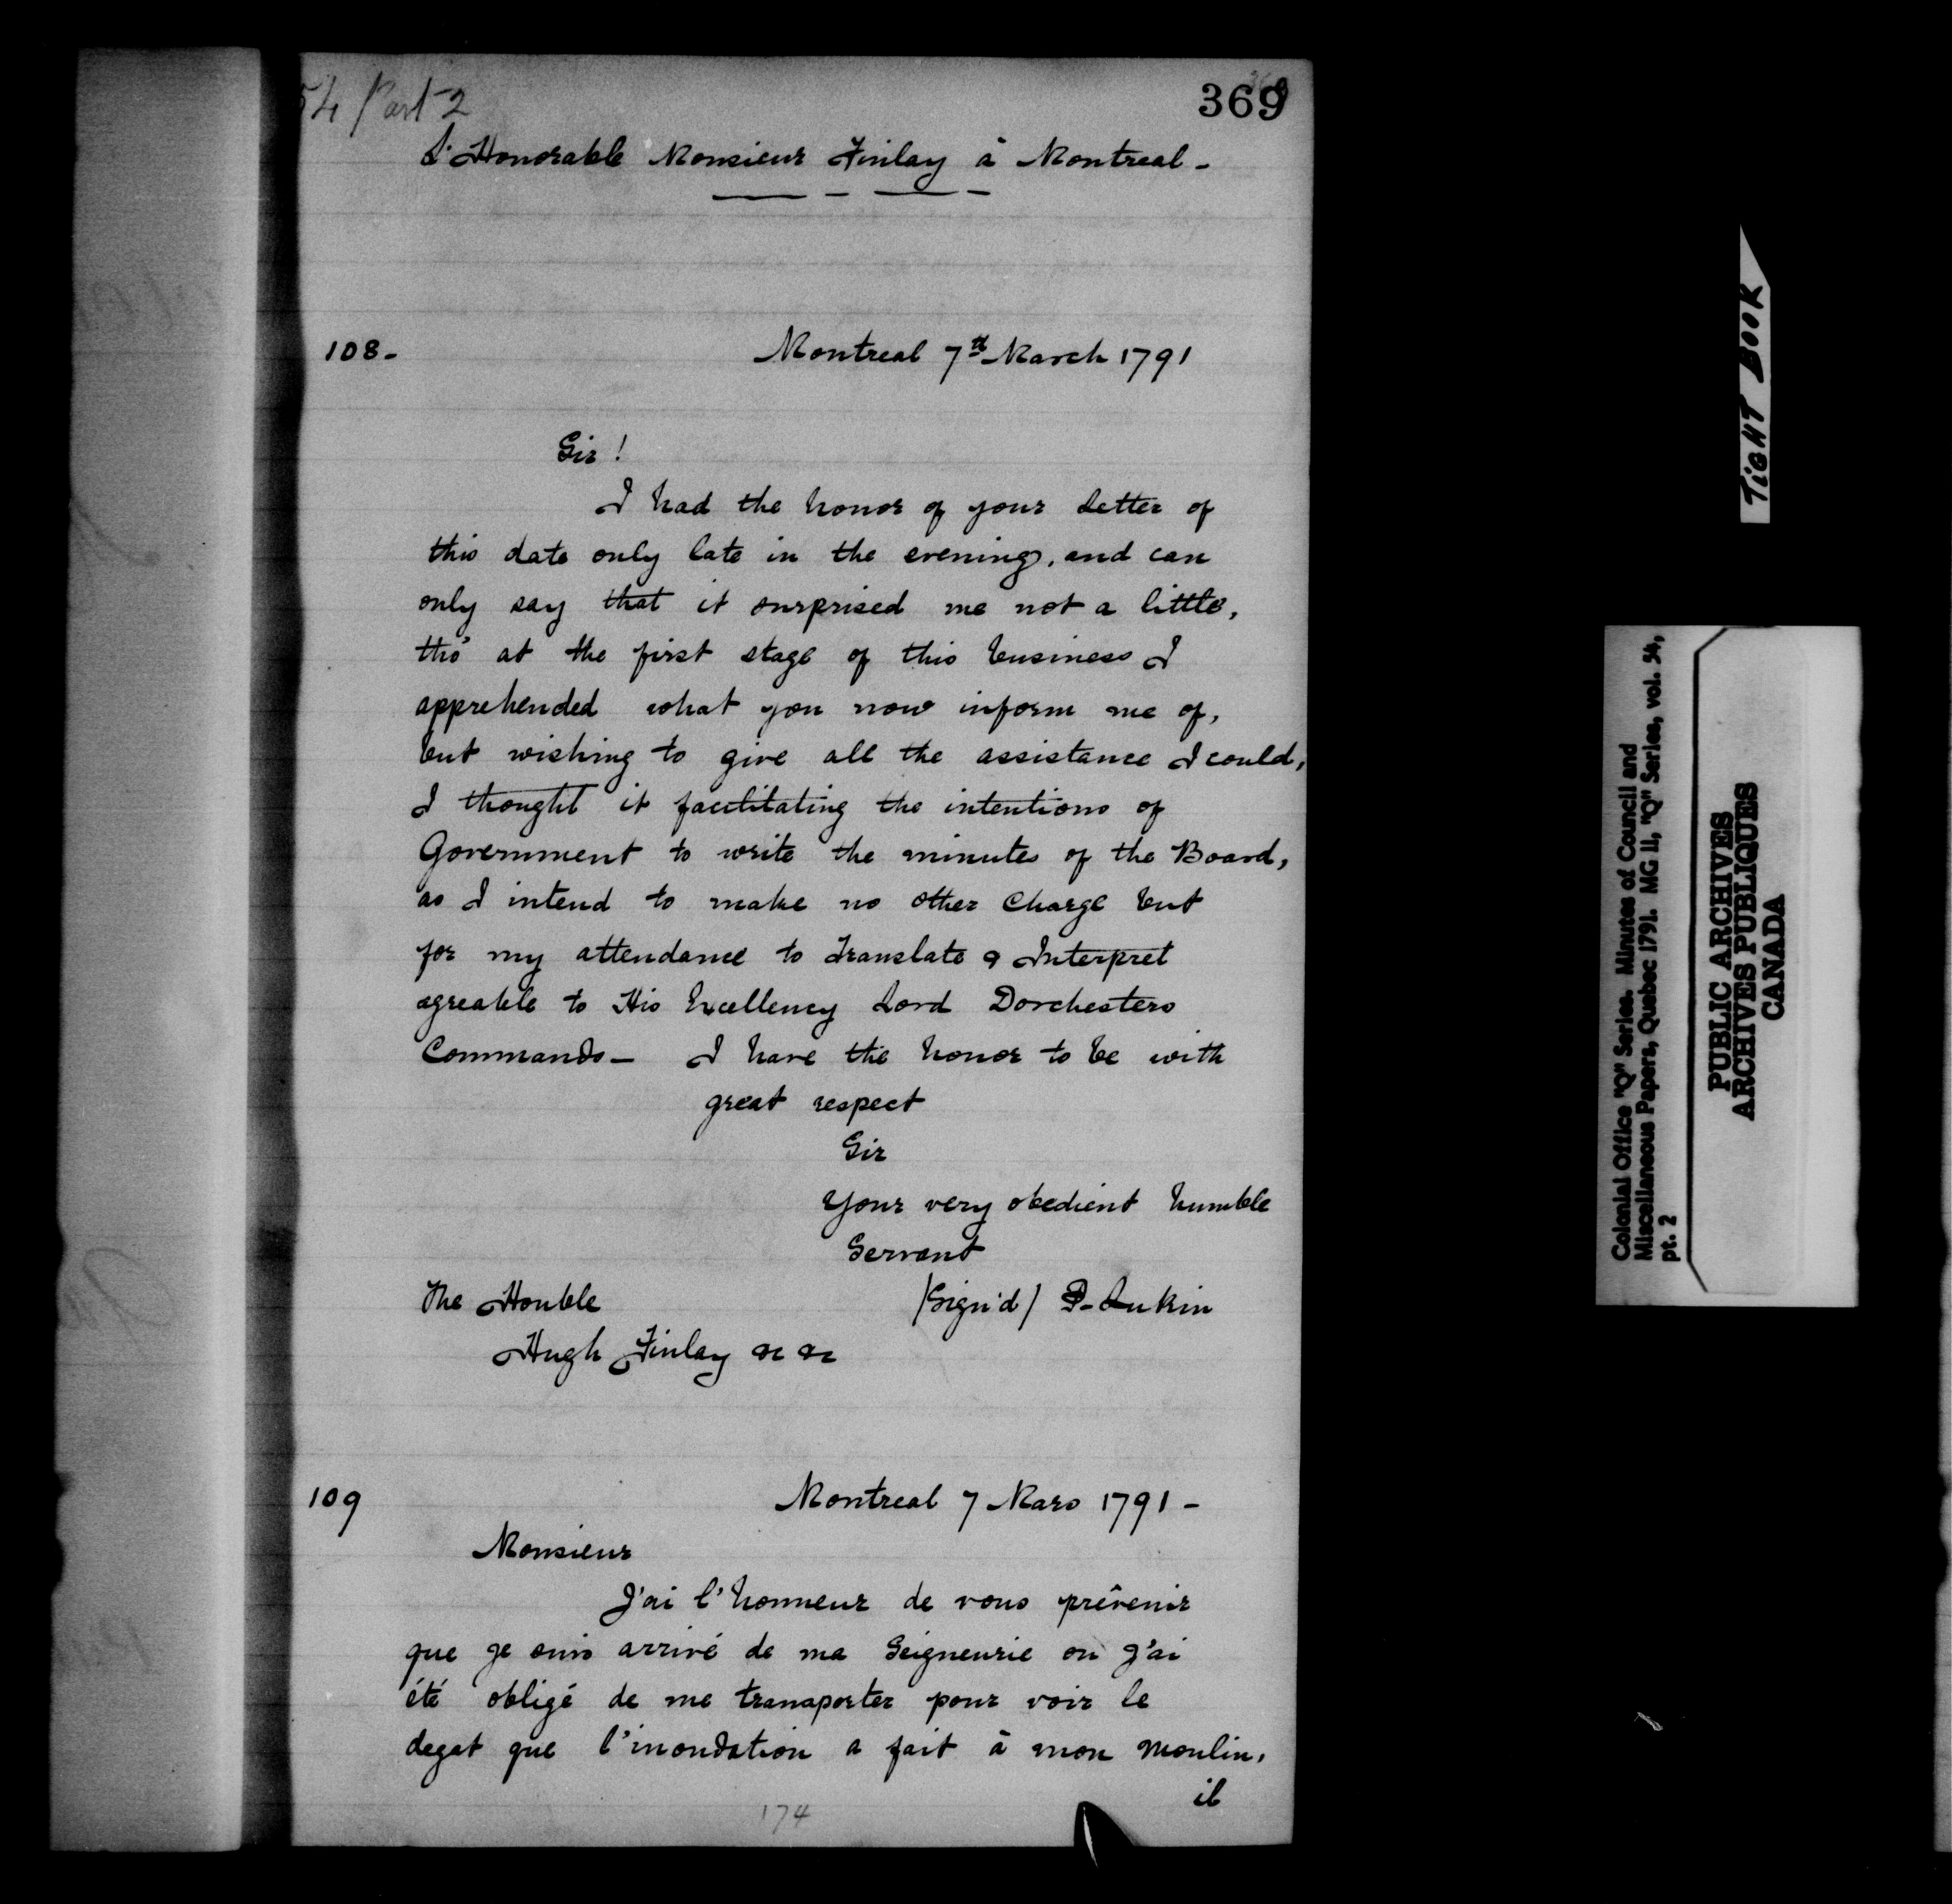 54 Part 2
369
L'Honorable Monsieur Finlay à Montreal -
108 -
Montreal 7th March 1791
Sir !
I had the honor of your Letter of
this date only late in the evening, and can
only say that it surprised me not a little,
tho' at the first stage of this business I
apprehended what you now inform me of,
but wishing to give all the assistance I could,
I thought it facilitating the intentions of
Government to write the minutes of the Board,
as I intend to make no other Charge but
for my attendance to Translate & Interpret
agreable to His Excellency Lord Dorchesters
Commands - I have the honor to be with
great respect
Sir
Your very obedient humble
Servant
The Honble
/Sign'd/ P- Lukin
Hugh Finlay &c &c
109
Montreal 7 Mars 1791 -
Monsieur
J'ai l'honneur de vous prêvenir
que je suis arrivé de ma Seigneurie ou j'ai
été obligé de me transporter pour voir le
degat que l'inondation a fait à mon moulin,
il
174
TIGHT BOOK
Colonial Office "Q" Series. Minutes of Council and
Miscellaneous Papers, Quebec 1791. MG 11, "Q" Series, vol. 54,
pt. 2
PUBLIC ARCHIVES
ARCHIVES PUBLIQUES
CANADA